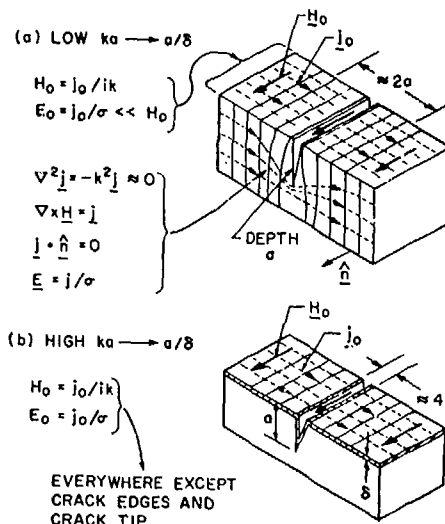 (a) LOW ka → a/δ
H₀ = j₀/ik
E₀ = j₀/σ << H₀
∇²j = -k²j ≈ 0
∇×H = j
j • n̂ = 0
E = j/σ
H₀
j₀
≈ 2a
DEPTH
a
n̂
(b) HIGH ka → a/δ
H₀ = j₀/ik
E₀ = j₀/σ
EVERYWHERE EXCEPT
CRACK EDGES AND
CRACK TIP
H₀
j₀
≈ 4
a
δ